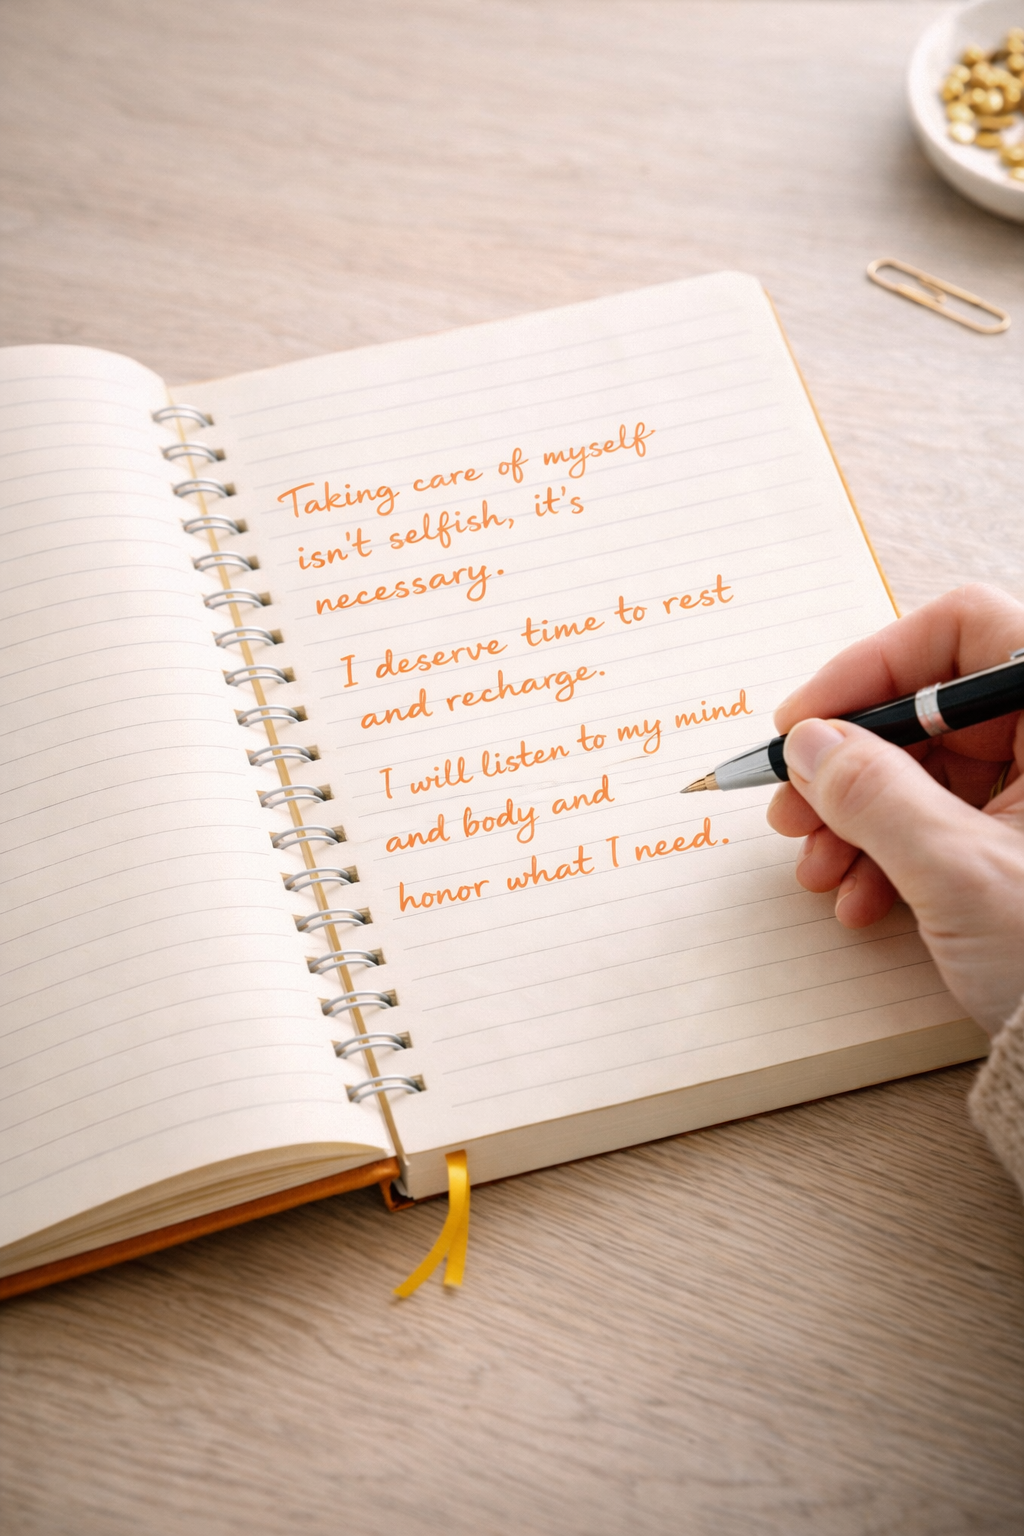 Taking care of myself
isn't selfish, it's
necessary.
I deserve time to rest
and recharge.
I will listen to my mind
and body and
honor what I need.